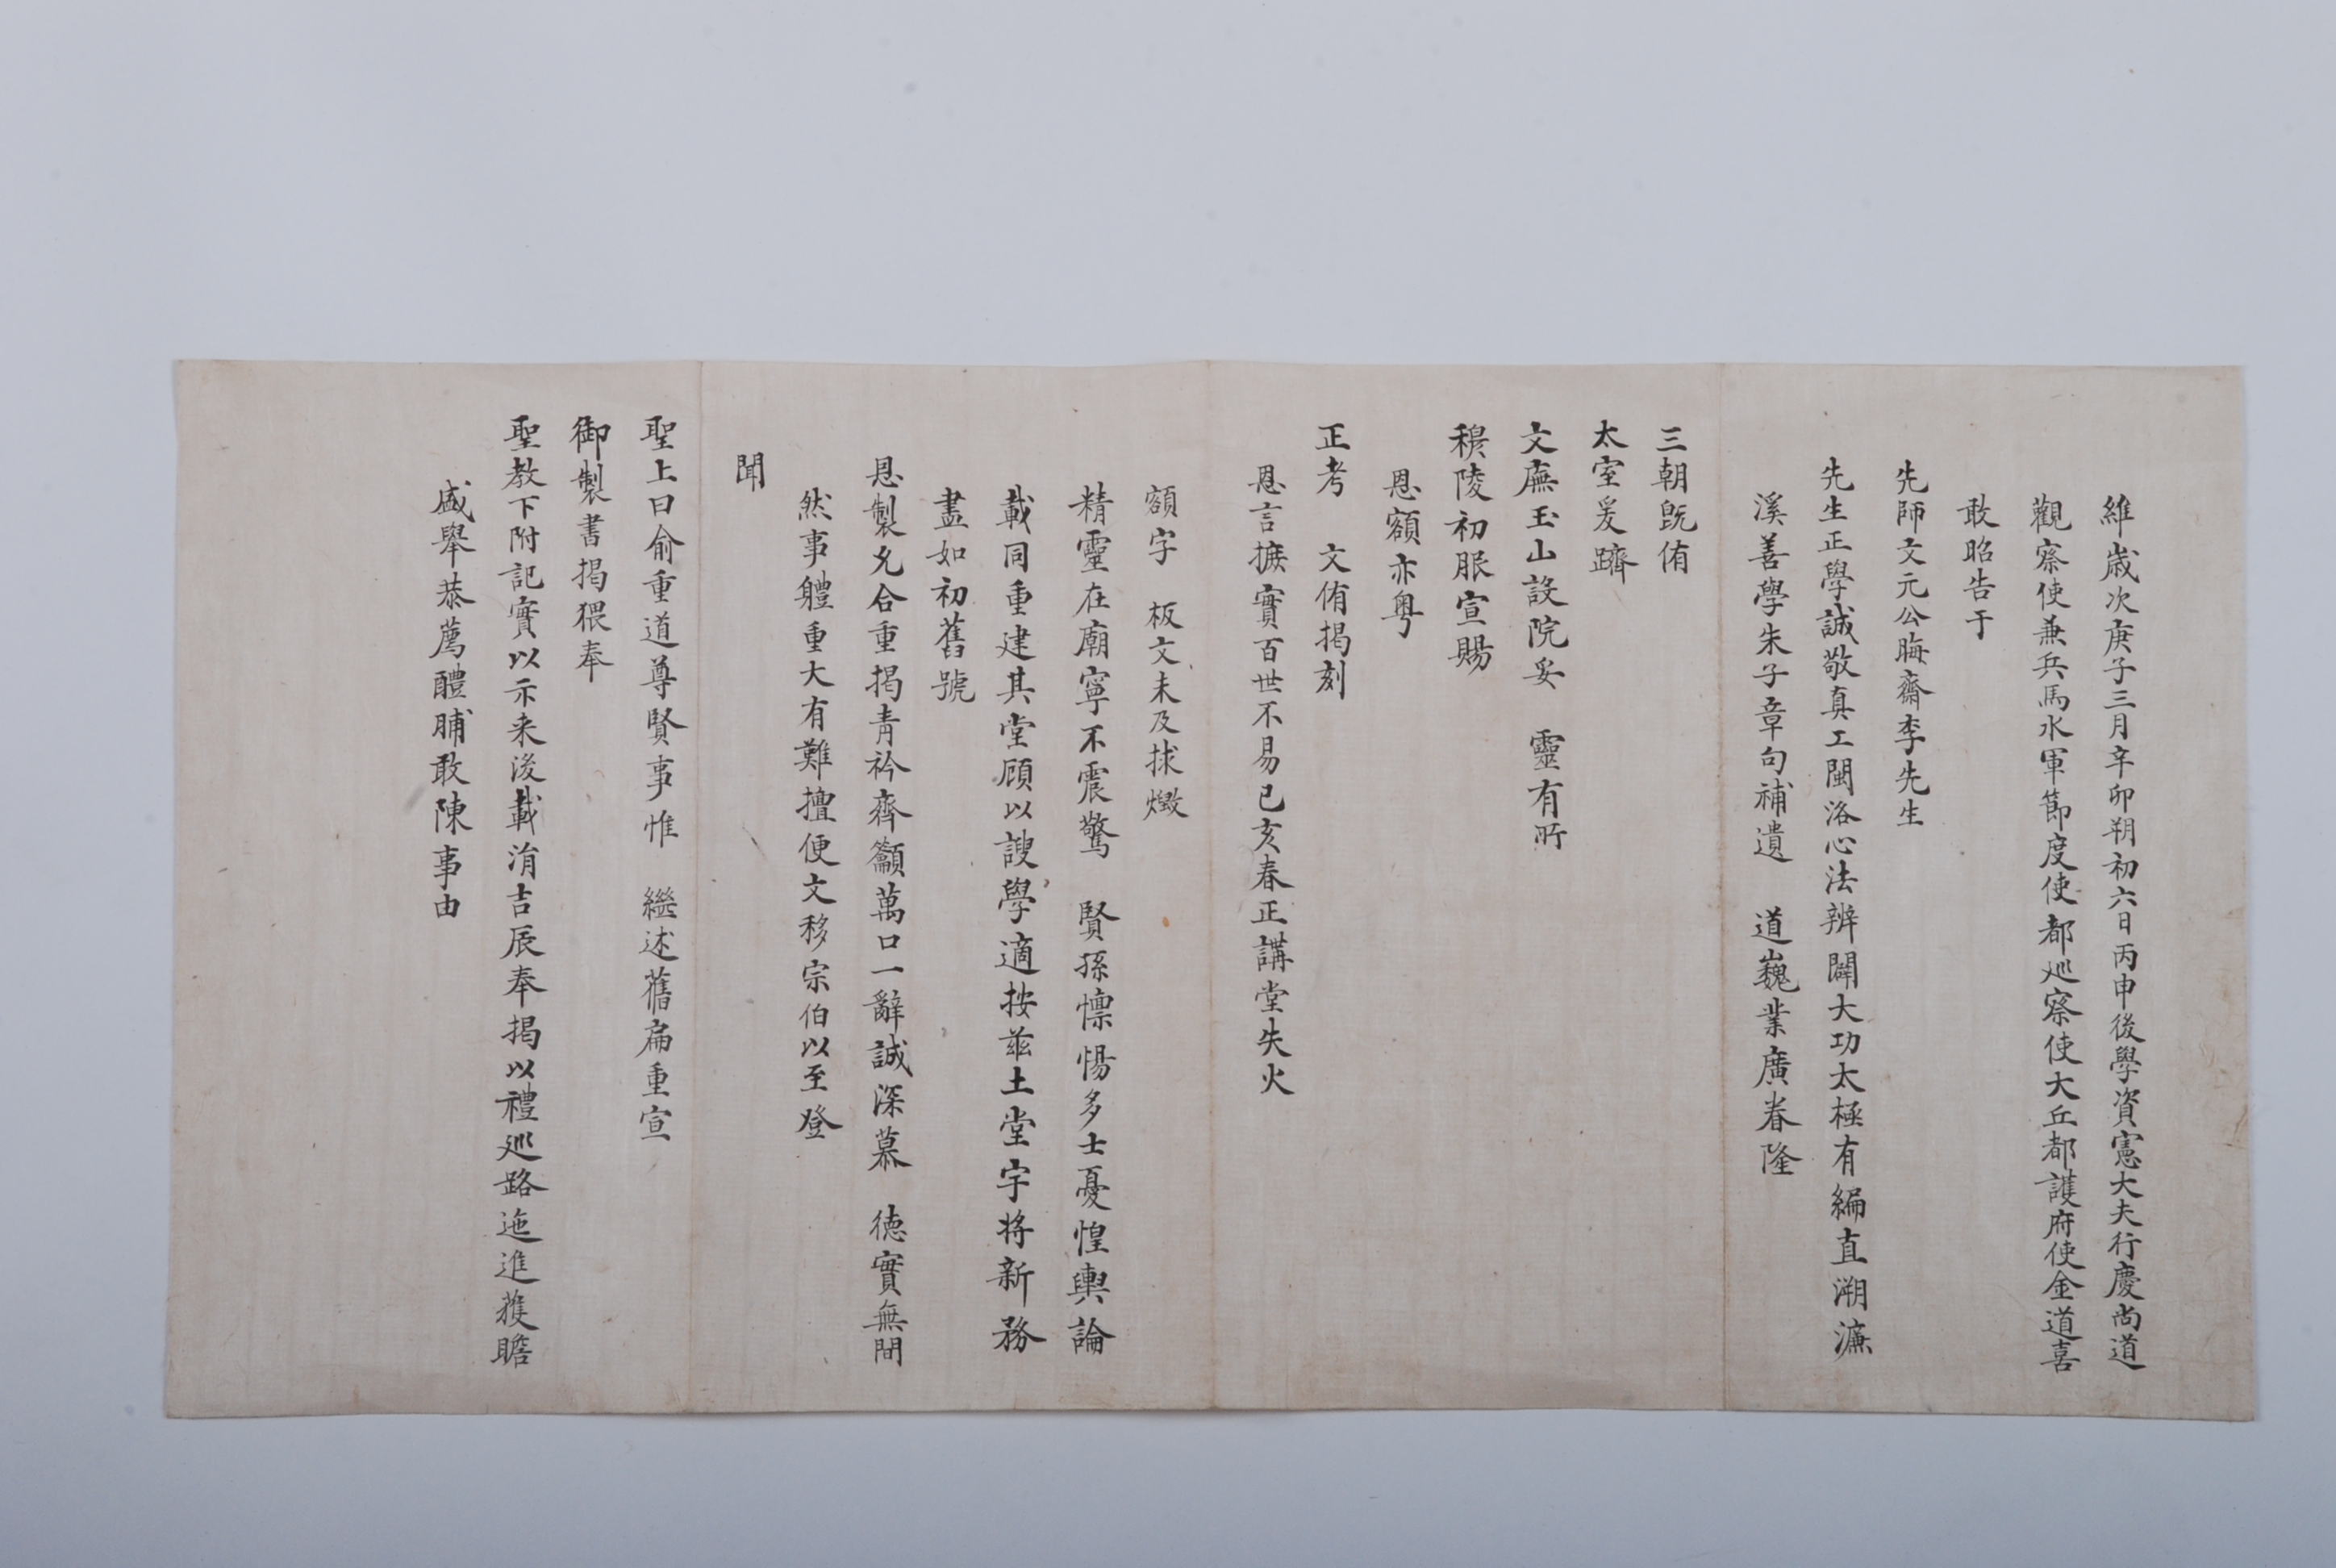 維歲次庚子三月辛卯朔初六日丙申後學資憲大夫行慶尚道
觀察使兼兵馬水軍節度使都巡察使大丘都護府使金道喜
敢昭告于
先師文元公晦齋李先生
先生正學誠敬真工閩洛心法辨闢大功太極有編直溯濂
溪善學朱子章句補遺 道巍業廣眷隆
三朝既侑
太室爰躋
文廡玉山設院妥 靈有所
穆陵初服宣賜
恩額亦粤
正考 文侑揭刻
恩言摭實百世不易已亥春正講堂失火
額字 板文未及捄燬
精靈在廟寧不震驚 賢孫懍惕多士憂惶輿論
載同重建其堂顧以謏學適按茲土堂宇将新務
盡如初舊號
恩製允合重揭青衿齊籲萬口一辭誠深慕 徳實無間
然事軆重大有難擅便文移宗伯以至登
聞
聖上曰俞重道尊賢事惟 繼述舊扁重宣
御製書揭猥奉
聖教下附記實以示来後載涓吉辰奉揭以禮巡路迤進獲瞻
盛舉恭薦醴脯敢陳事由